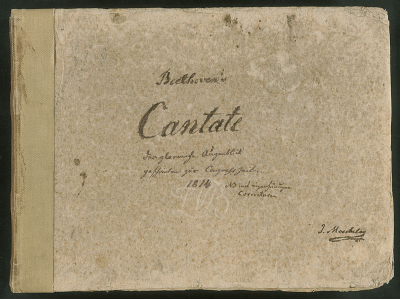 Beethoven's
Cantate
Der glorreiche Augenblick
zur Congress Zeit
1814 NB mit eigenhändigen
Correcturen
I. Moscheles